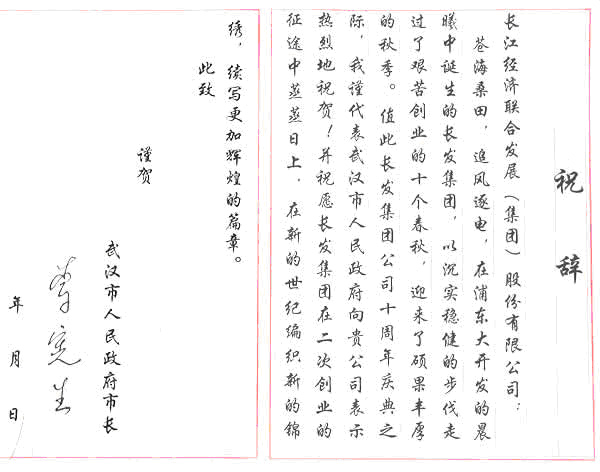 祝辞
长江经济联合发展（集团）股份有限公司：
苍海桑田，追风逐电，在浦东大开发的晨
曦中诞生的长发集团，以沉实稳健的步伐走
过了艰苦创业的十个春秋，迎来了硕果丰厚
的秋季。值此长发集团公司十周年庆典之
际，我谨代表武汉市人民政府向贵公司表示
热烈地祝贺！并祝愿长发集团在二次创业的
征途中蒸蒸日上，在新的世纪编织新的锦
绣，续写更加辉煌的篇章。
此致
谨贺
武汉市人民政府市长
李宪生
年 月 日